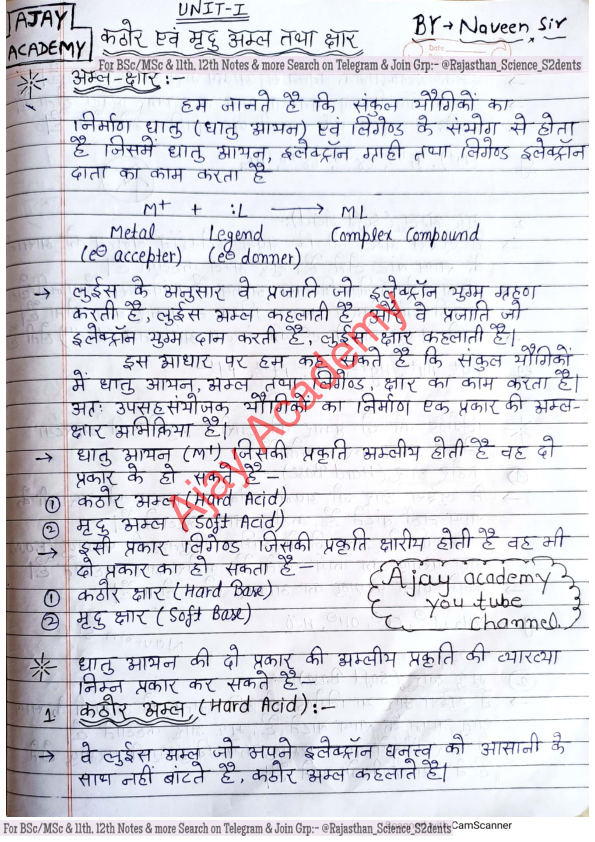 AJAY
ACADEMY
UNIT-I
कठोर एवं मृदु अम्ल तथा क्षार
BY → Naveen Sir
Date
For BSc/MSc & 11th, 12th Notes & more Search on Telegram & Join Grp:- @Rajasthan_Science_S2dents
अम्ल-क्षार :-
हम जानते है कि संकुल यौगिकों का
निर्माण धातु (धातु आयन) एवं लिगेण्ड के संयोग से होता
है जिसमें धातु आयन, इलेक्ट्रॉन ग्राही तथा लिगेण्ड इलेक्ट्रॉन
दाता का काम करता है
M+ + :L → ML
Metal Legend Complex Compound
(e⊖ accepter) (e⊖ donner)
→ लुईस के अनुसार वे प्रजाति जो इलेक्ट्रॉन युग्म ग्रहण
करती है, लुईस अम्ल कहलाती है और वे प्रजाति जो
इलेक्ट्रॉन युग्म दान करती है, लुईस क्षार कहलाती है|
इस आधार पर हम कह सकते है कि संकुल यौगिकों
में धातु आयन, अम्ल तथा लिगेण्ड, क्षार का काम करता है|
अतः उपसहसंयोजक यौगिकों का निर्माण एक प्रकार की अम्ल-
क्षार अभिक्रिया है|
→ धातु आयन (M+) जिसकी प्रकृति अम्लीय होती है वह दो
प्रकार के हो सकते है-
① कठोर अम्ल (Hard Acid)
② मृदु अम्ल (Soft Acid)
→ इसी प्रकार लिगेण्ड जिसकी प्रकृति क्षारीय होती है वह भी
दो प्रकार का हो सकता है-
① कठोर क्षार (Hard Base)
② मृदु क्षार (Soft Base)
Ajay academy
you tube
channel.
धातु आयन की दो प्रकार की अम्लीय प्रकृति की व्याख्या
निम्न प्रकार कर सकते है-
1. कठोर अम्ल (Hard Acid):-
→ वे लुईस अम्ल जो अपने इलेक्ट्रॉन घनत्व को आसानी के
साथ नहीं बांटते है, कठोर अम्ल कहलाते है|
Ajay Academy
For BSc/MSc & 11th, 12th Notes & more Search on Telegram & Join Grp:- @Rajasthan_Science_S2dents
CamScanner